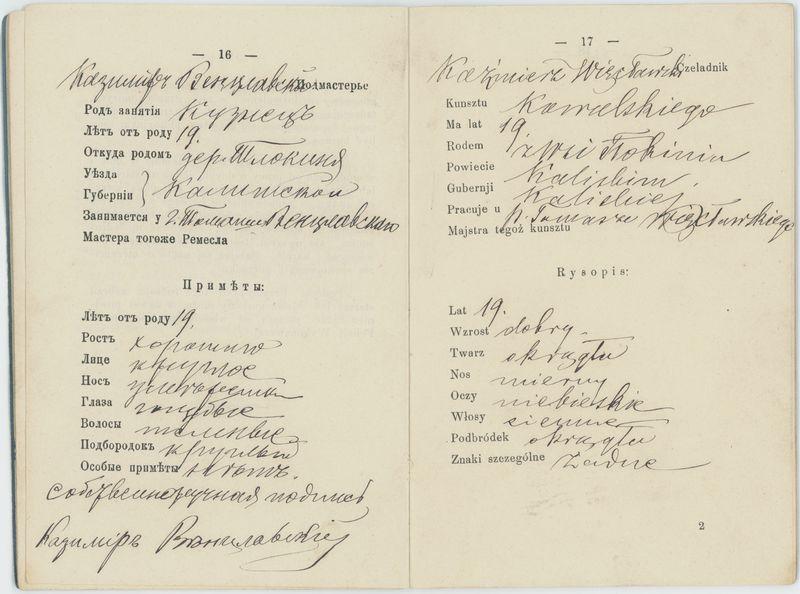 — 16 —
Казимiръ Венцлавскiй Подмастерье
Родъ занятія Кузнецъ
Лѣтъ отъ роду 19.
Откуда родомъ дер. Тлокиня
Уѣзда
Губерніи } Калишской
Занимается у г. Томаша Венцлавскаго
Мастера тогоже Ремесла
Примѣты:
Лѣтъ отъ роду 19.
Ростъ хорошаго
Лице круглое
Носъ умѣренный
Глаза голубые
Волосы темные
Подбородокъ круглый
Особые примѣты нѣтъ.
собственноручная подпись
Казимiръ
— 17 —
Kaźmierz Więcławski Czeladnik
Kunsztu Kowalskiego
Ma lat 19.
Rodem z wsi Tłokinia
Powiecie Kaliskim.
Gubernji Kaliskiej
Pracuje u p. Tomasza Więcławskiego
Majstra tegoż kunsztu
Rysopis:
Lat 19.
Wzrost dobry
Twarz okrągła
Nos mierny
Oczy niebieskie
Włosy ciemne
Podbródek okrągła
Znaki szczególne żadne
2